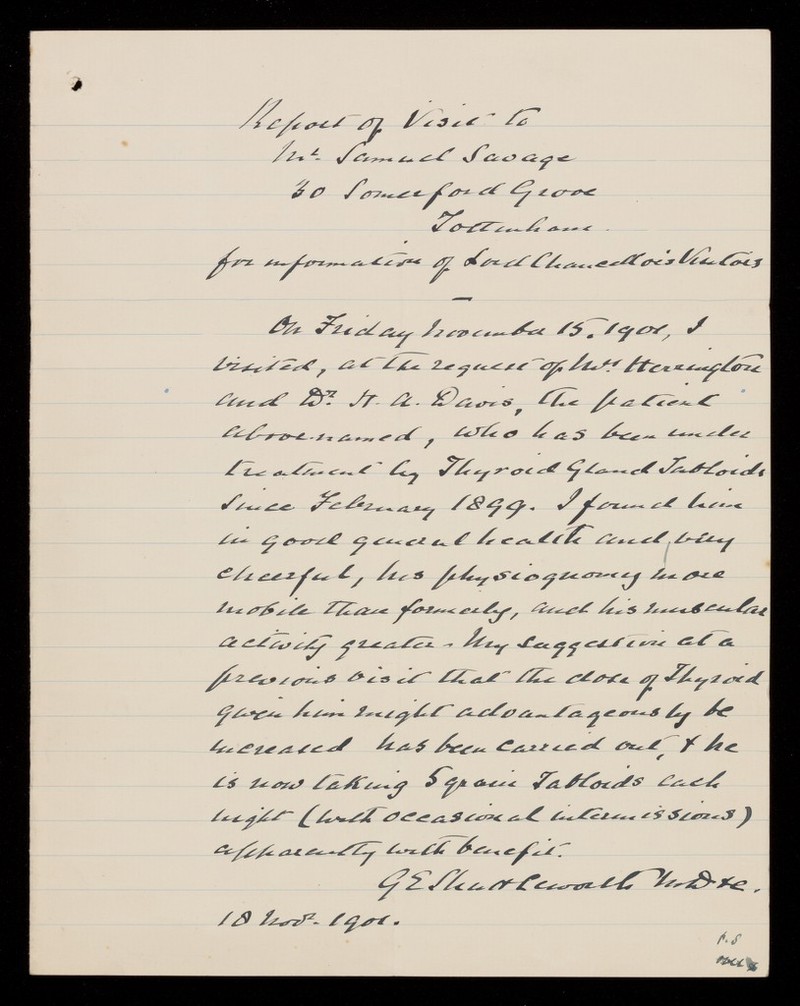 Report of Visit to
Mr. Samuel Savage
30 Somerford Grove
Tottenham.
for information of Lord Chancellor's Visitors
On Friday November 15. 1901, I
visited, at the request of Mrs. Herrington
and Dr. H. A. Davis, the patient
above-named, who has been under
treatment by Thyroid Gland Tabloids
since February 1899. I found him
in good general health and very
cheerful, his physiognomy more
mobile than formerly, and his muscular
activity greater. My suggestion at a
previous visit that the dose of Thyroid
given him might advantageously be
increased has been carried out, & he
is now taking 5 grain Tabloids each
night (with occasional intermissions)
apparently with benefit.
G E Shuttleworth M.D &c.
18 Novr. 1901.
P.S